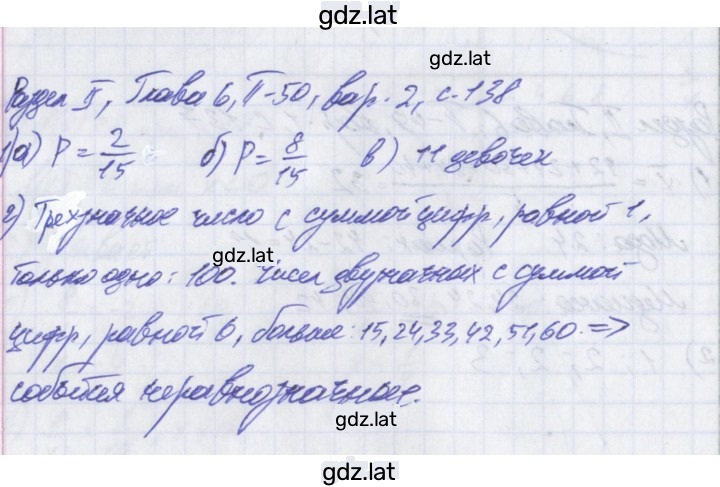 gdz.lat
gdz.lat
Раздел II, Глава 6, П-50, вар. 2, с. 138
1) а) P = 2/15 б) P = 8/15 в) 11 девочек
2) Трехзначное число с суммой цифр, равной 1,
только одно: 100. Чисел двузначных с суммой
цифр, равной 6, больше: 15, 24, 33, 42, 51, 60. =>
события неравнозначные.
gdz.lat
gdz.lat